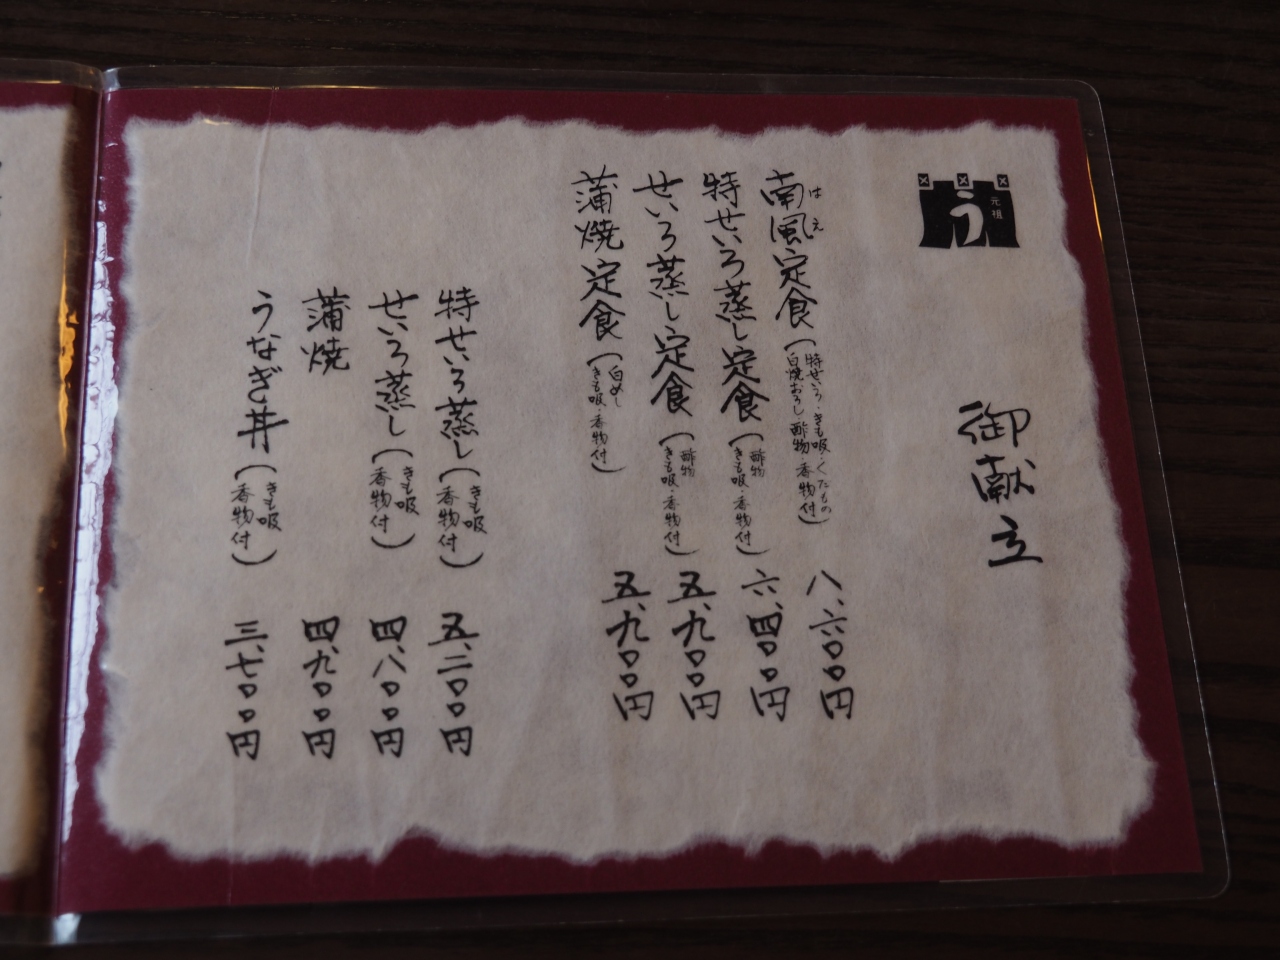 元祖
う
御献立
南風定食(特せいろ・きも吸・くだもの
はえ
白焼おろし・酢物・香物付) 八、六〇〇円
特せいろ蒸し定食(酢物
きも吸・香物付) 六、四〇〇円
せいろ蒸し定食(酢物
きも吸・香物付) 五、九〇〇円
蒲焼定食(白めし
きも吸・香物付) 五、九〇〇円
特せいろ蒸し(きも吸
香物付) 五、二〇〇円
せいろ蒸し(きも吸
香物付) 四、八〇〇円
蒲焼 四、九〇〇円
うなぎ丼(きも吸
香物付) 三、七〇〇円